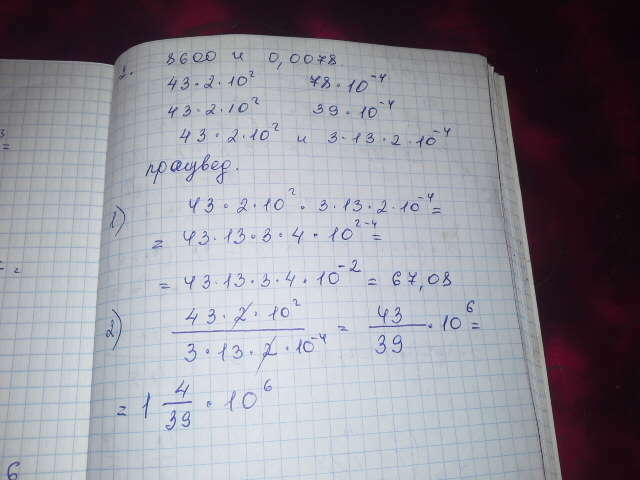 1. 8600 и 0,0078.
43·2·10² 78·10⁻⁴
43·2·10² 39·10⁻⁴
43·2·10² и 3·13·2·10⁻⁴
произвед.
1) 43·2·10²·3·13·2·10⁻⁴=
= 43·13·3·4·10²⁻⁴=
= 43·13·3·4·10⁻² = 67,08
2) 43·2·10² / 3·13·2·10⁻⁴ = 43/39·10⁶=
= 1 4/39·10⁶
3
=
6